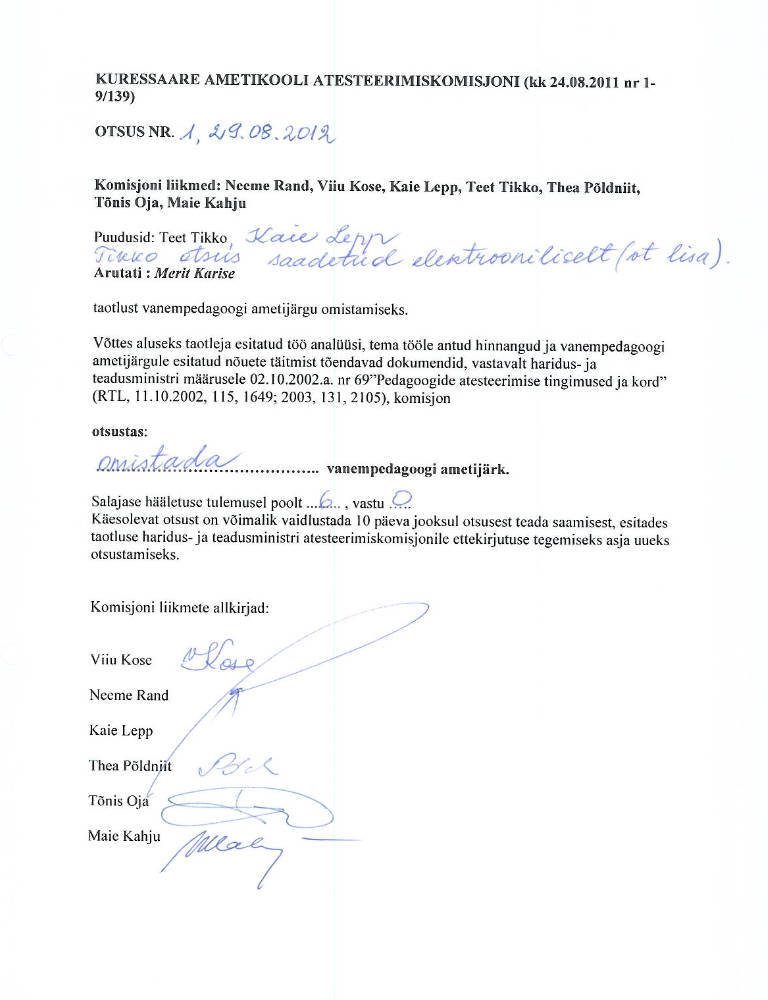 KURESSAARE AMETIKOOLI ATESTEERIMISKOMISJONI (kk 24.08.2011 nr 1-
9/139)
OTSUS NR. 1, 29.08.2012
Komisjoni liikmed: Neeme Rand, Viiu Kose, Kaie Lepp, Teet Tikko, Thea Põldniit,
Tõnis Oja, Maie Kahju
Puudusid: Teet Tikko, Kaie Lepp
Tikko otsus saadetud elektrooniliselt (vt lisa).
Arutati : Merit Karise
taotlust vanempedagoogi ametijärgu omistamiseks.
Võttes aluseks taotleja esitatud töö analüüsi, tema tööle antud hinnangud ja vanempedagoogi
ametijärgule esitatud nõuete täitmist tõendavad dokumendid, vastavalt haridus- ja
teadusministri määrusele 02.10.2002.a. nr 69”Pedagoogide atesteerimise tingimused ja kord”
(RTL, 11.10.2002, 115, 1649; 2003, 131, 2105), komisjon
otsustas:
omistada vanempedagoogi ametijärk.
Salajase hääletuse tulemusel poolt ...6... , vastu .0...
Käesolevat otsust on võimalik vaidlustada 10 päeva jooksul otsusest teada saamisest, esitades
taotluse haridus- ja teadusministri atesteerimiskomisjonile ettekirjutuse tegemiseks asja uueks
otsustamiseks.
Komisjoni liikmete allkirjad:
Viiu Kose VKose
Neeme Rand
Kaie Lepp
Thea Põldniit
Tõnis Oja
Maie Kahju